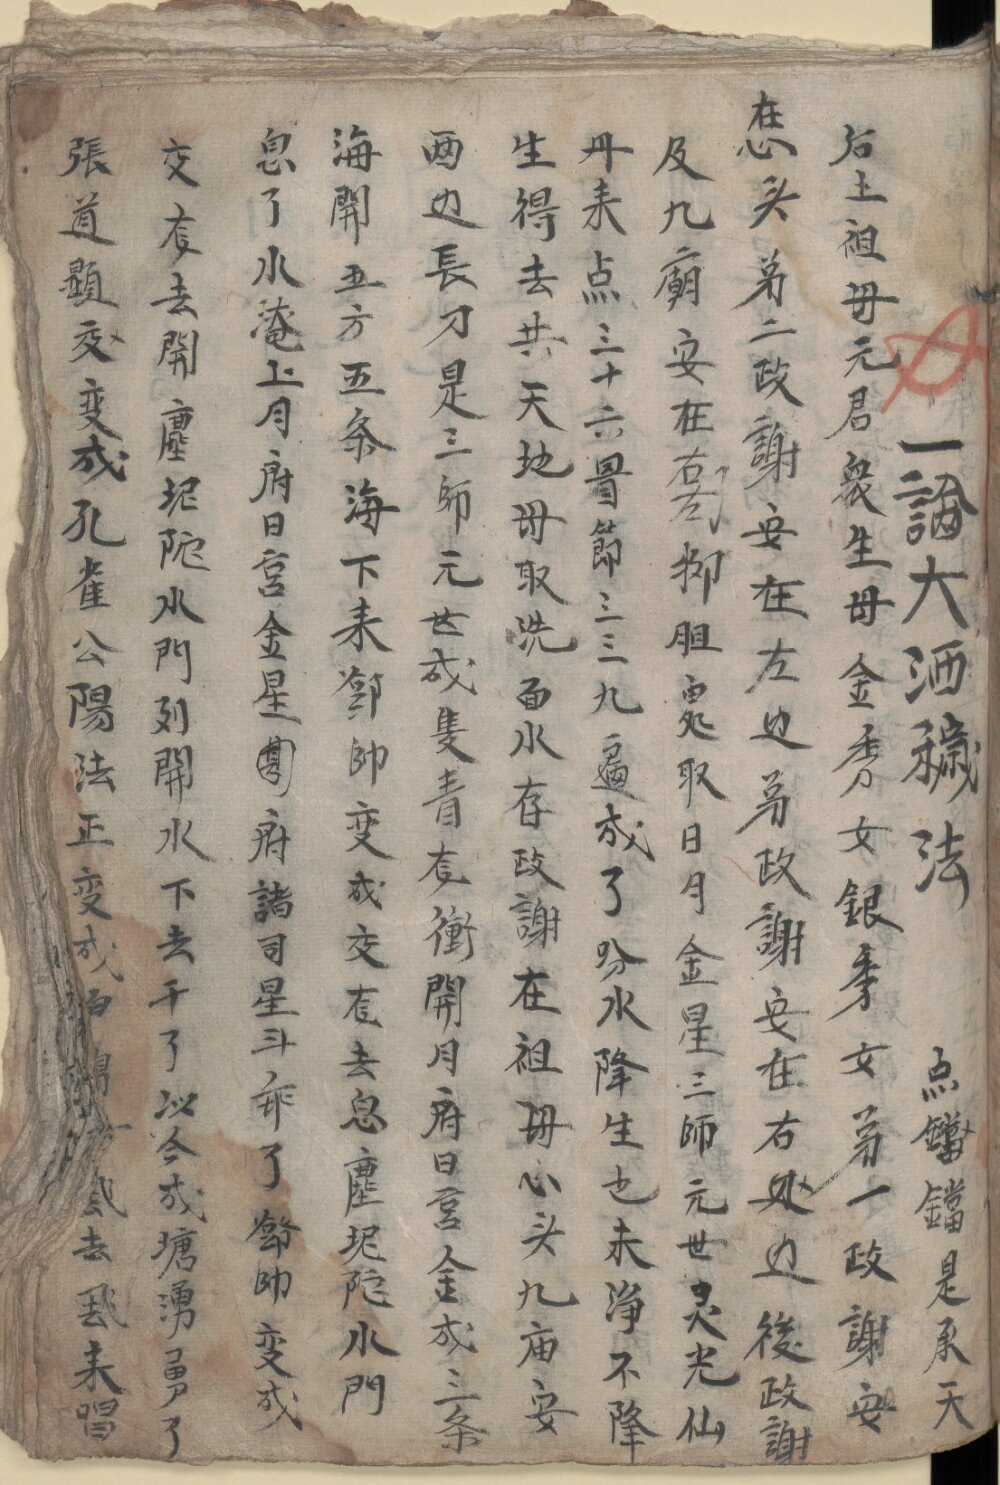 一論大洒穢法 点鐺鐺是承天
后土祖母元君衆生母金秀女銀秀女苐一政謝安
在心头苐二政謝安在左边苐政謝安在右处边後政謝
及九廟安在右 抑胆処取日月金星三師元世灵光仙
丹来点三十六置節三三九遍成了吩水降生也未浄不降
生得去共天地母取洗面水存政謝在祖母心头九庙安
両边長刀是三師元世成隻青 衝開月府日宮金成三条
海開五方五条海下来鄧帥变成交 去息塵坭陀水門
息了水淹上月府日宮金星 府諸司星斗 了鄧帥变成
交 去開塵坭陀水門列開水下去干了以今成塘湧勇了
張道顕交变成孔雀公陽法正变成白 去 来唱